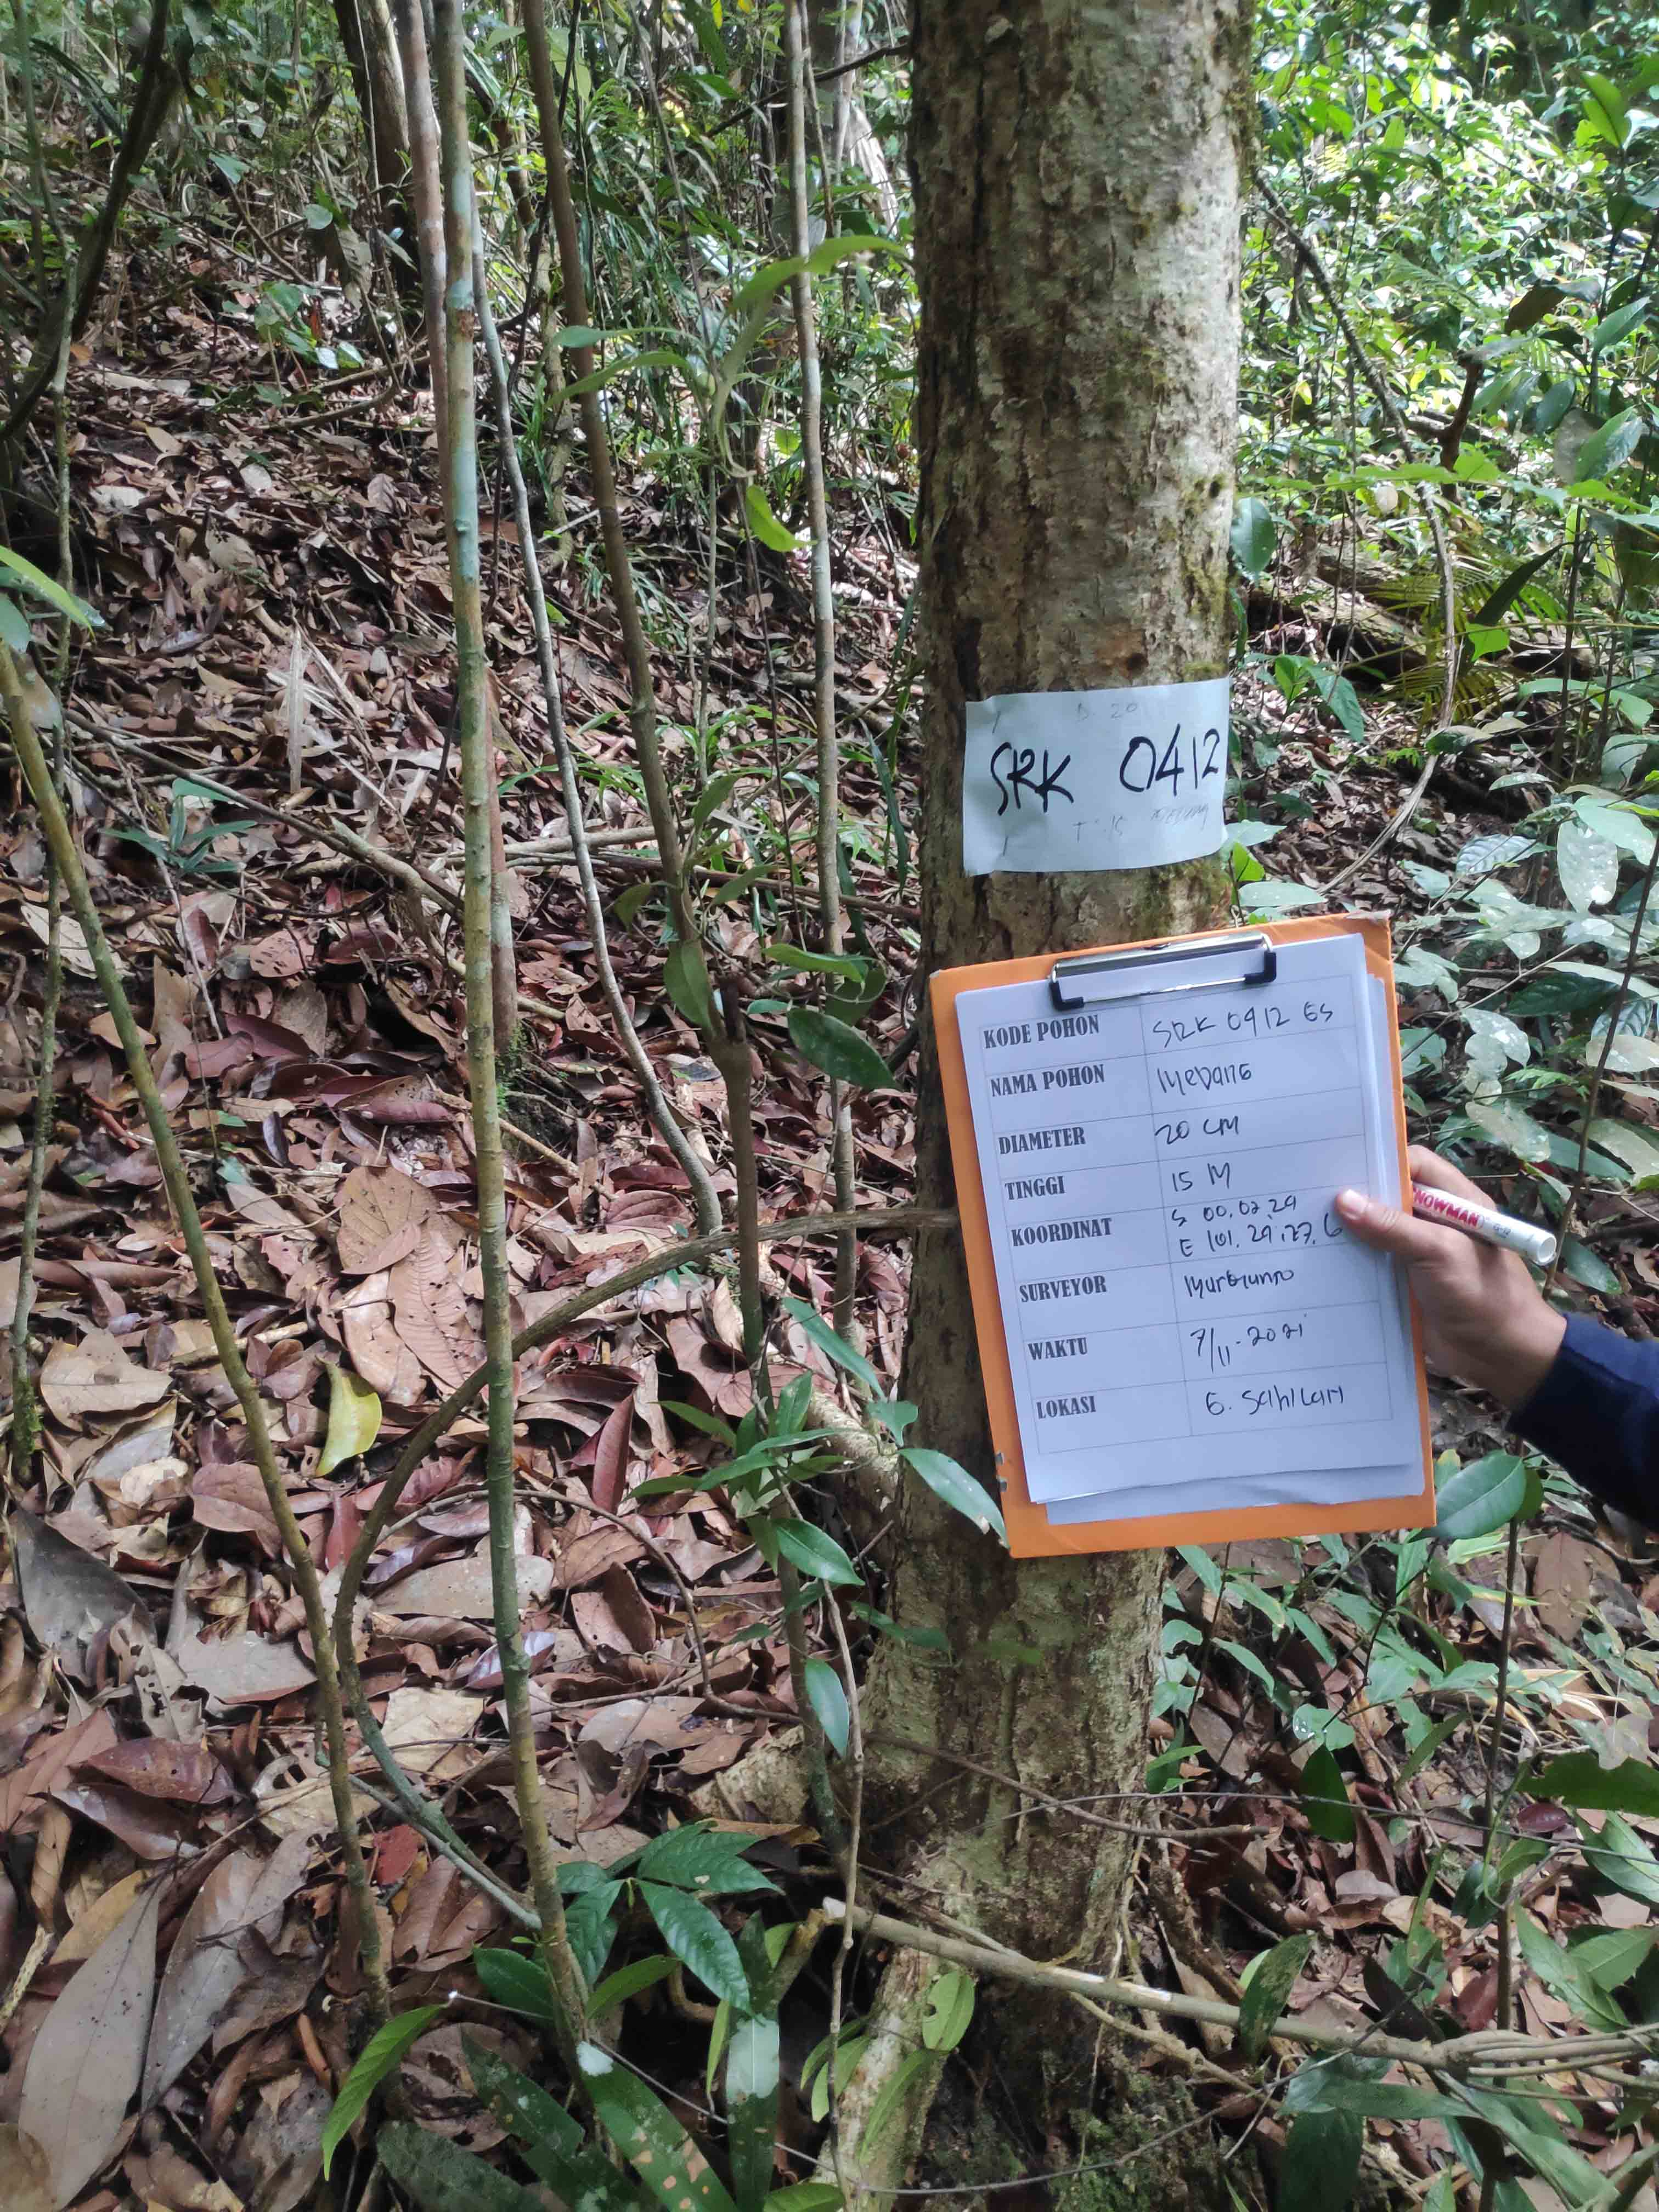 D. 20
SRK 0412
T: 15 MEDANG
KODE POHON SRK 0412 GS
NAMA POHON MEDANG
DIAMETER 20 CM
TINGGI 15 M
KOORDINAT S 00.02.29
E 101.29.27.6
SURVEYOR
WAKTU 7/11-2021
LOKASI G. SAHILAN
SNOWMAN